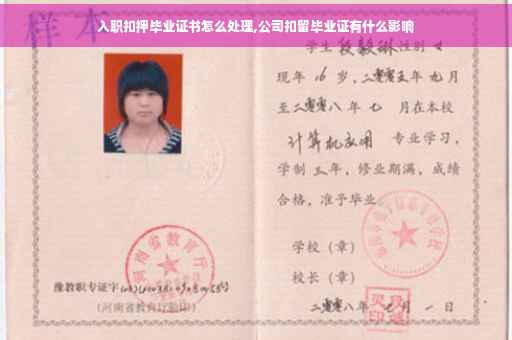 入职扣押毕业证书怎么处理,公司扣留毕业证有什么影响
样本
学生段毅琳性别女
现年 16 岁,二零零五年 九月
至二零零八年 七 月在本校
计算机应用 专业学习,
学制 三年,修业期满,成绩
合格,准予毕业
学校(章)
校长(章)
二零零八年 月 一 日
河南省教育厅
豫教职专证字
(河南省教育厅验印)